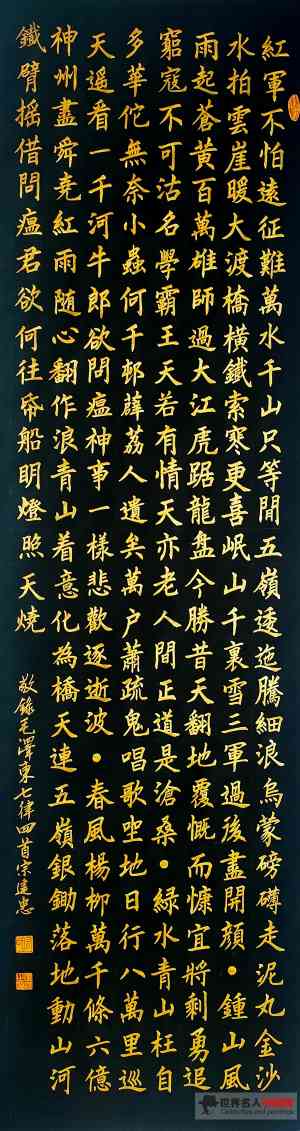 紅軍不怕遠征難萬水千山只等閒五嶺逶迤騰細浪烏蒙磅礡走泥丸金沙
水拍雲崖暖大渡橋橫鐵索寒更喜岷山千裏雪三軍過後盡開顏•鍾山風
雨起蒼黃百萬雄師過大江虎踞龍盤今勝昔天翻地覆慨而慷宜將剩勇追
窮寇不可沽名學霸王天若有情天亦老人間正道是滄桑•綠水青山枉自
多華佗無奈小蟲何千邨薜荔人遺矣萬户蕭疏鬼唱歌坐地日行八萬里巡
天遥看一千河牛郎欲問瘟神事一樣悲歡逐逝波•春風楊柳萬千條六億
神州盡舜堯紅雨随心翻作浪青山着意化為橋天連五嶺銀鋤落地動山河
鐵臂摇借問瘟君欲何往帋船明燈照天燒
敬錄毛澤東七律四首宗建忠
世界名人
Celebrities and paintings